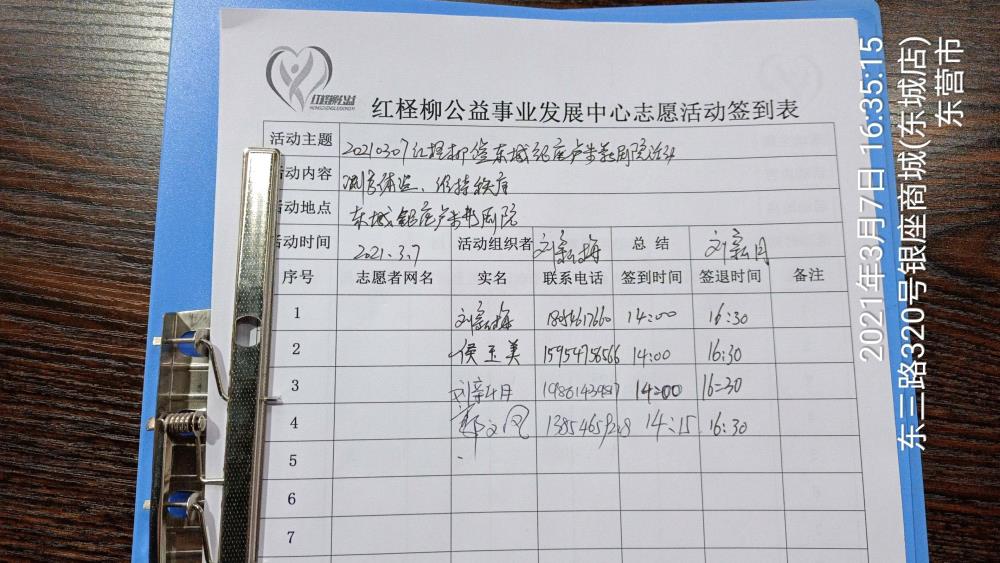 红柽柳公益
HONGCHENGLIUGONGYI
红柽柳公益事业发展中心志愿活动签到表
活动主题 20210307红柽柳 东城银座 剧院活动
活动内容 测 体温、维持秩序
活动地点 东城银座 剧院
活动时间 2021.3.7 活动组织者 刘 梅 总结 刘 月
序号 志愿者网名 实名 联系电话 签到时间 签退时间 备注
1 刘 梅 14:00 16:30
2 侯玉美 15954756566 14:00 16:30
3 刘 月 14:00 16:30
4 文凤 14:15 16:30
5
6
7
2021年3月7日 16:35:15
东三路320号银座商城(东城店)
东营市